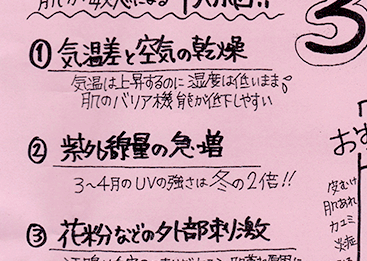 肌が敏感になる
① 気温差と空気の乾燥
気温は上昇するのに湿度は低いまま。
肌のバリア機能が低下しやすい
② 紫外線量の急増
3〜4月のUVの強さは冬の2倍!!
③ 花粉などの外部刺激
3
おす
皮むけ
肌あれ
カユミ
炎症